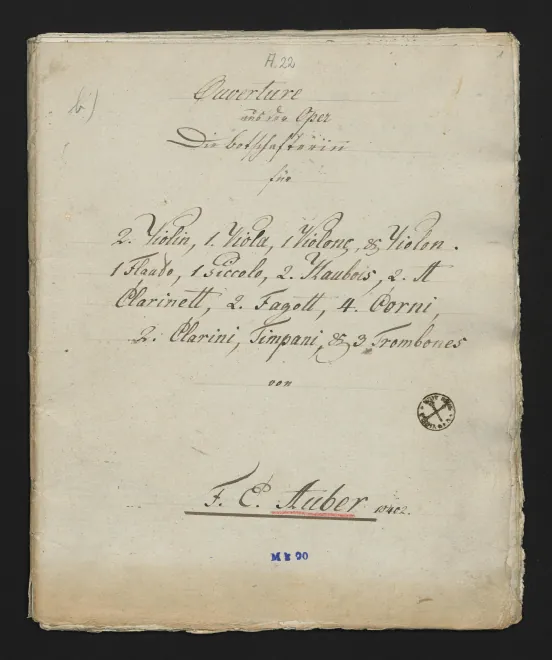 A 22
b)
Ouverture
aus der Oper
Die botschafterin
für
2. Violin, 1. Viola, 1 Violonc, & Violon.
1 Flauto, 1 Piccolo, 2. Haubois, 2. A
Clarinett, 2. Fagott, 4. Corni,
2. Clarini, Timpani, & 3 Trombones
von
F. C. Auber 1842.